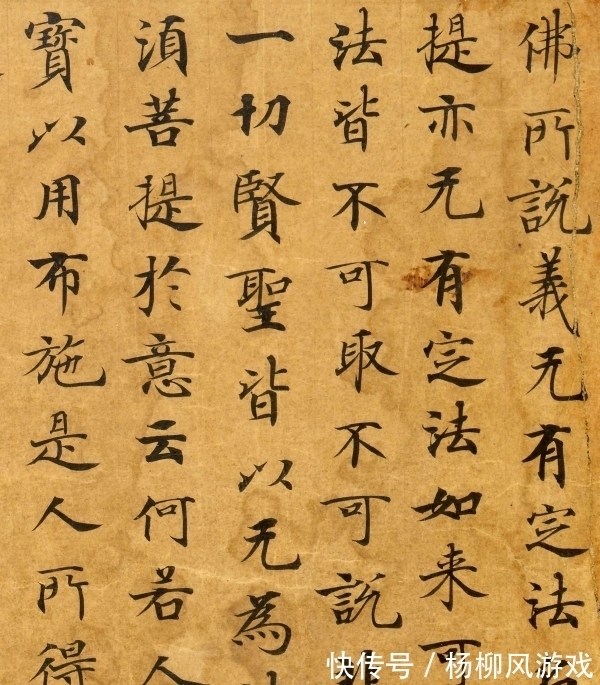 佛所說義无有定法
提亦无有定法如来可
法皆不可取不可說
一切賢聖皆以无為
須菩提於意云何若人
寶以用布施是人所得
快传号／杨柳风游戏